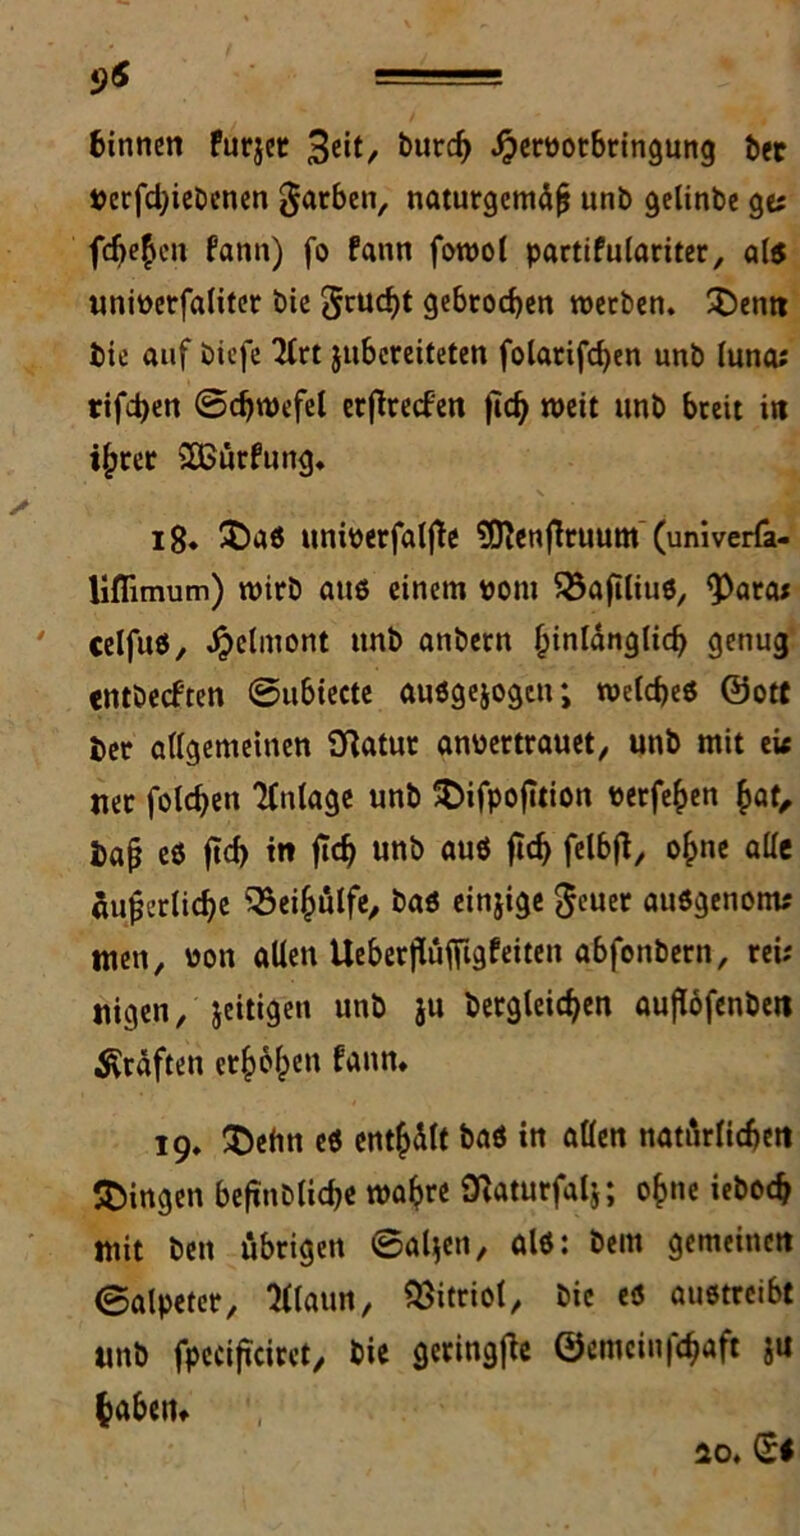 96
binnen kurzer Zeit, durch Hervorbringung der
verschiedenen Farben, naturgemäß und gelinde ge-
schehen kann) so kann sowol partikulariter, als
universaliter die Frucht gebrochen werden. Denn
die auf diese Art zubereiteten solarischen und luna-
rischen Schwefel erstrecken sich weit und breit in
ihrer Würkung.
18. Das universalste Menstruum (universa-
lissimum) wird aus einem vom Basilius, Para-
celsus, Helmont und andern hinlänglich genug
entdeckten Subiecte ausgezogen; welches Gott
der allgemeinen Natur anvertrauet, und mit ei-
ner solchen Anlage und Disposition versehen hat,
daß es sich in sich und aus sich selbst, ohne alle
äußerliche Beihülfe, das einzige Feuer ausgenom-
men, von allen Ueberflüssigkeiten absondern, rei-
nigen, zeitigen und zu dergleichen auflösenden
Kräften erhöhen kann.
19. Denn es enthält das in allen natürlichen
Dingen befindliche wahre Natursalz; ohne iedoch
mit den übrigen Salzen, als: dem gemeinen
Salpeter, Alaun, Vitriol, die es austreibt
und specificiret, die geringste Gemeinschaft zu
haben.
20. Es